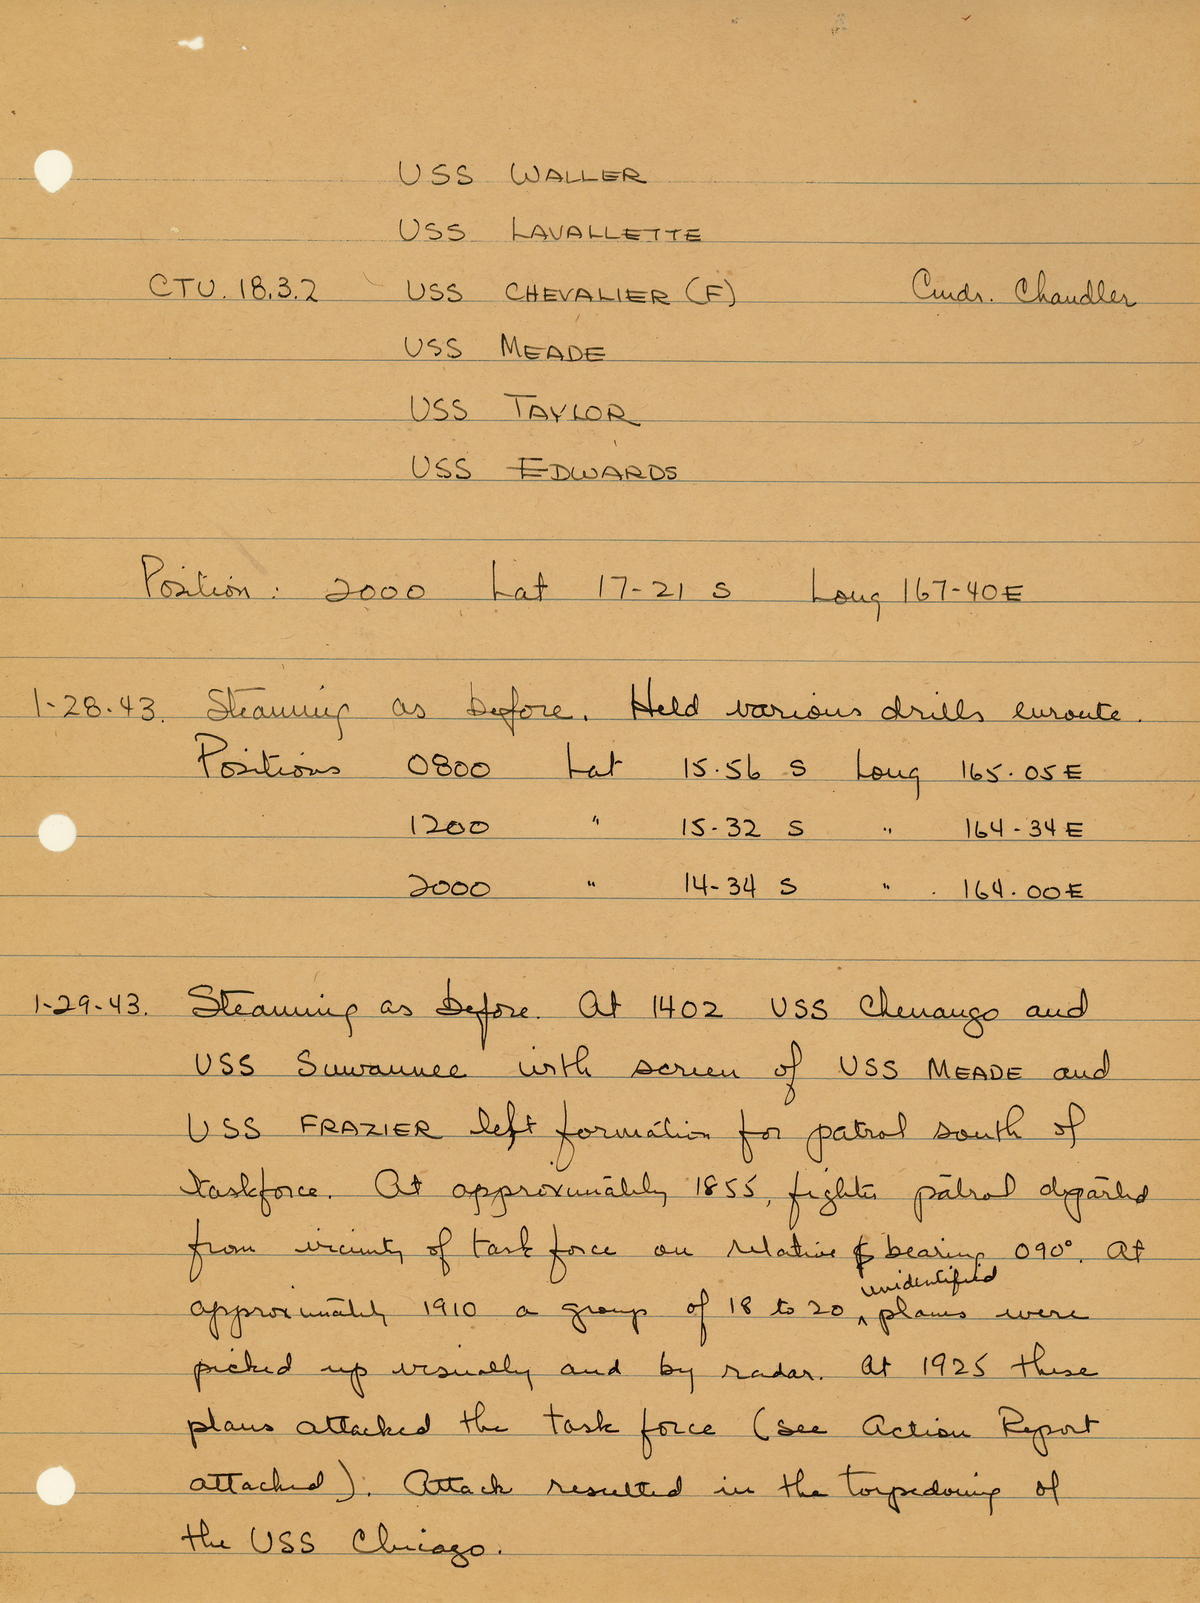 USS WALLER
USS LAVALLETTE
CTU. 18.3.2 USS CHEVALIER (F) Cmdr. Chandler
USS MEADE
USS TAYLOR
USS EDWARDS
Position: 2000 Lat 17-21 S Long 167-40 E
1-28-43. Steaming as before. Held various drills enroute.
Positions 0800 Lat 15.56 S Long 165.05 E
1200 " 15-32 S " 164-34 E
2000 " 14-34 S " 164.00 E
1-29-43. Steaming as before. At 1402 USS Chenango and
USS Suwannee with screen of USS MEADE and
USS FRAZIER left formation for patrol south of
taskforce. At approximately 1855, fighter patrol departed
from vicinity of task force on relative bearing 090°. At
unidentified
approximately 1910 a group of 18 to 20 ^ planes were
picked up visually and by radar. At 1925 these
planes attacked the task force (see Action Report
attached). Attack resulted in the torpedoing of
the USS Chicago.